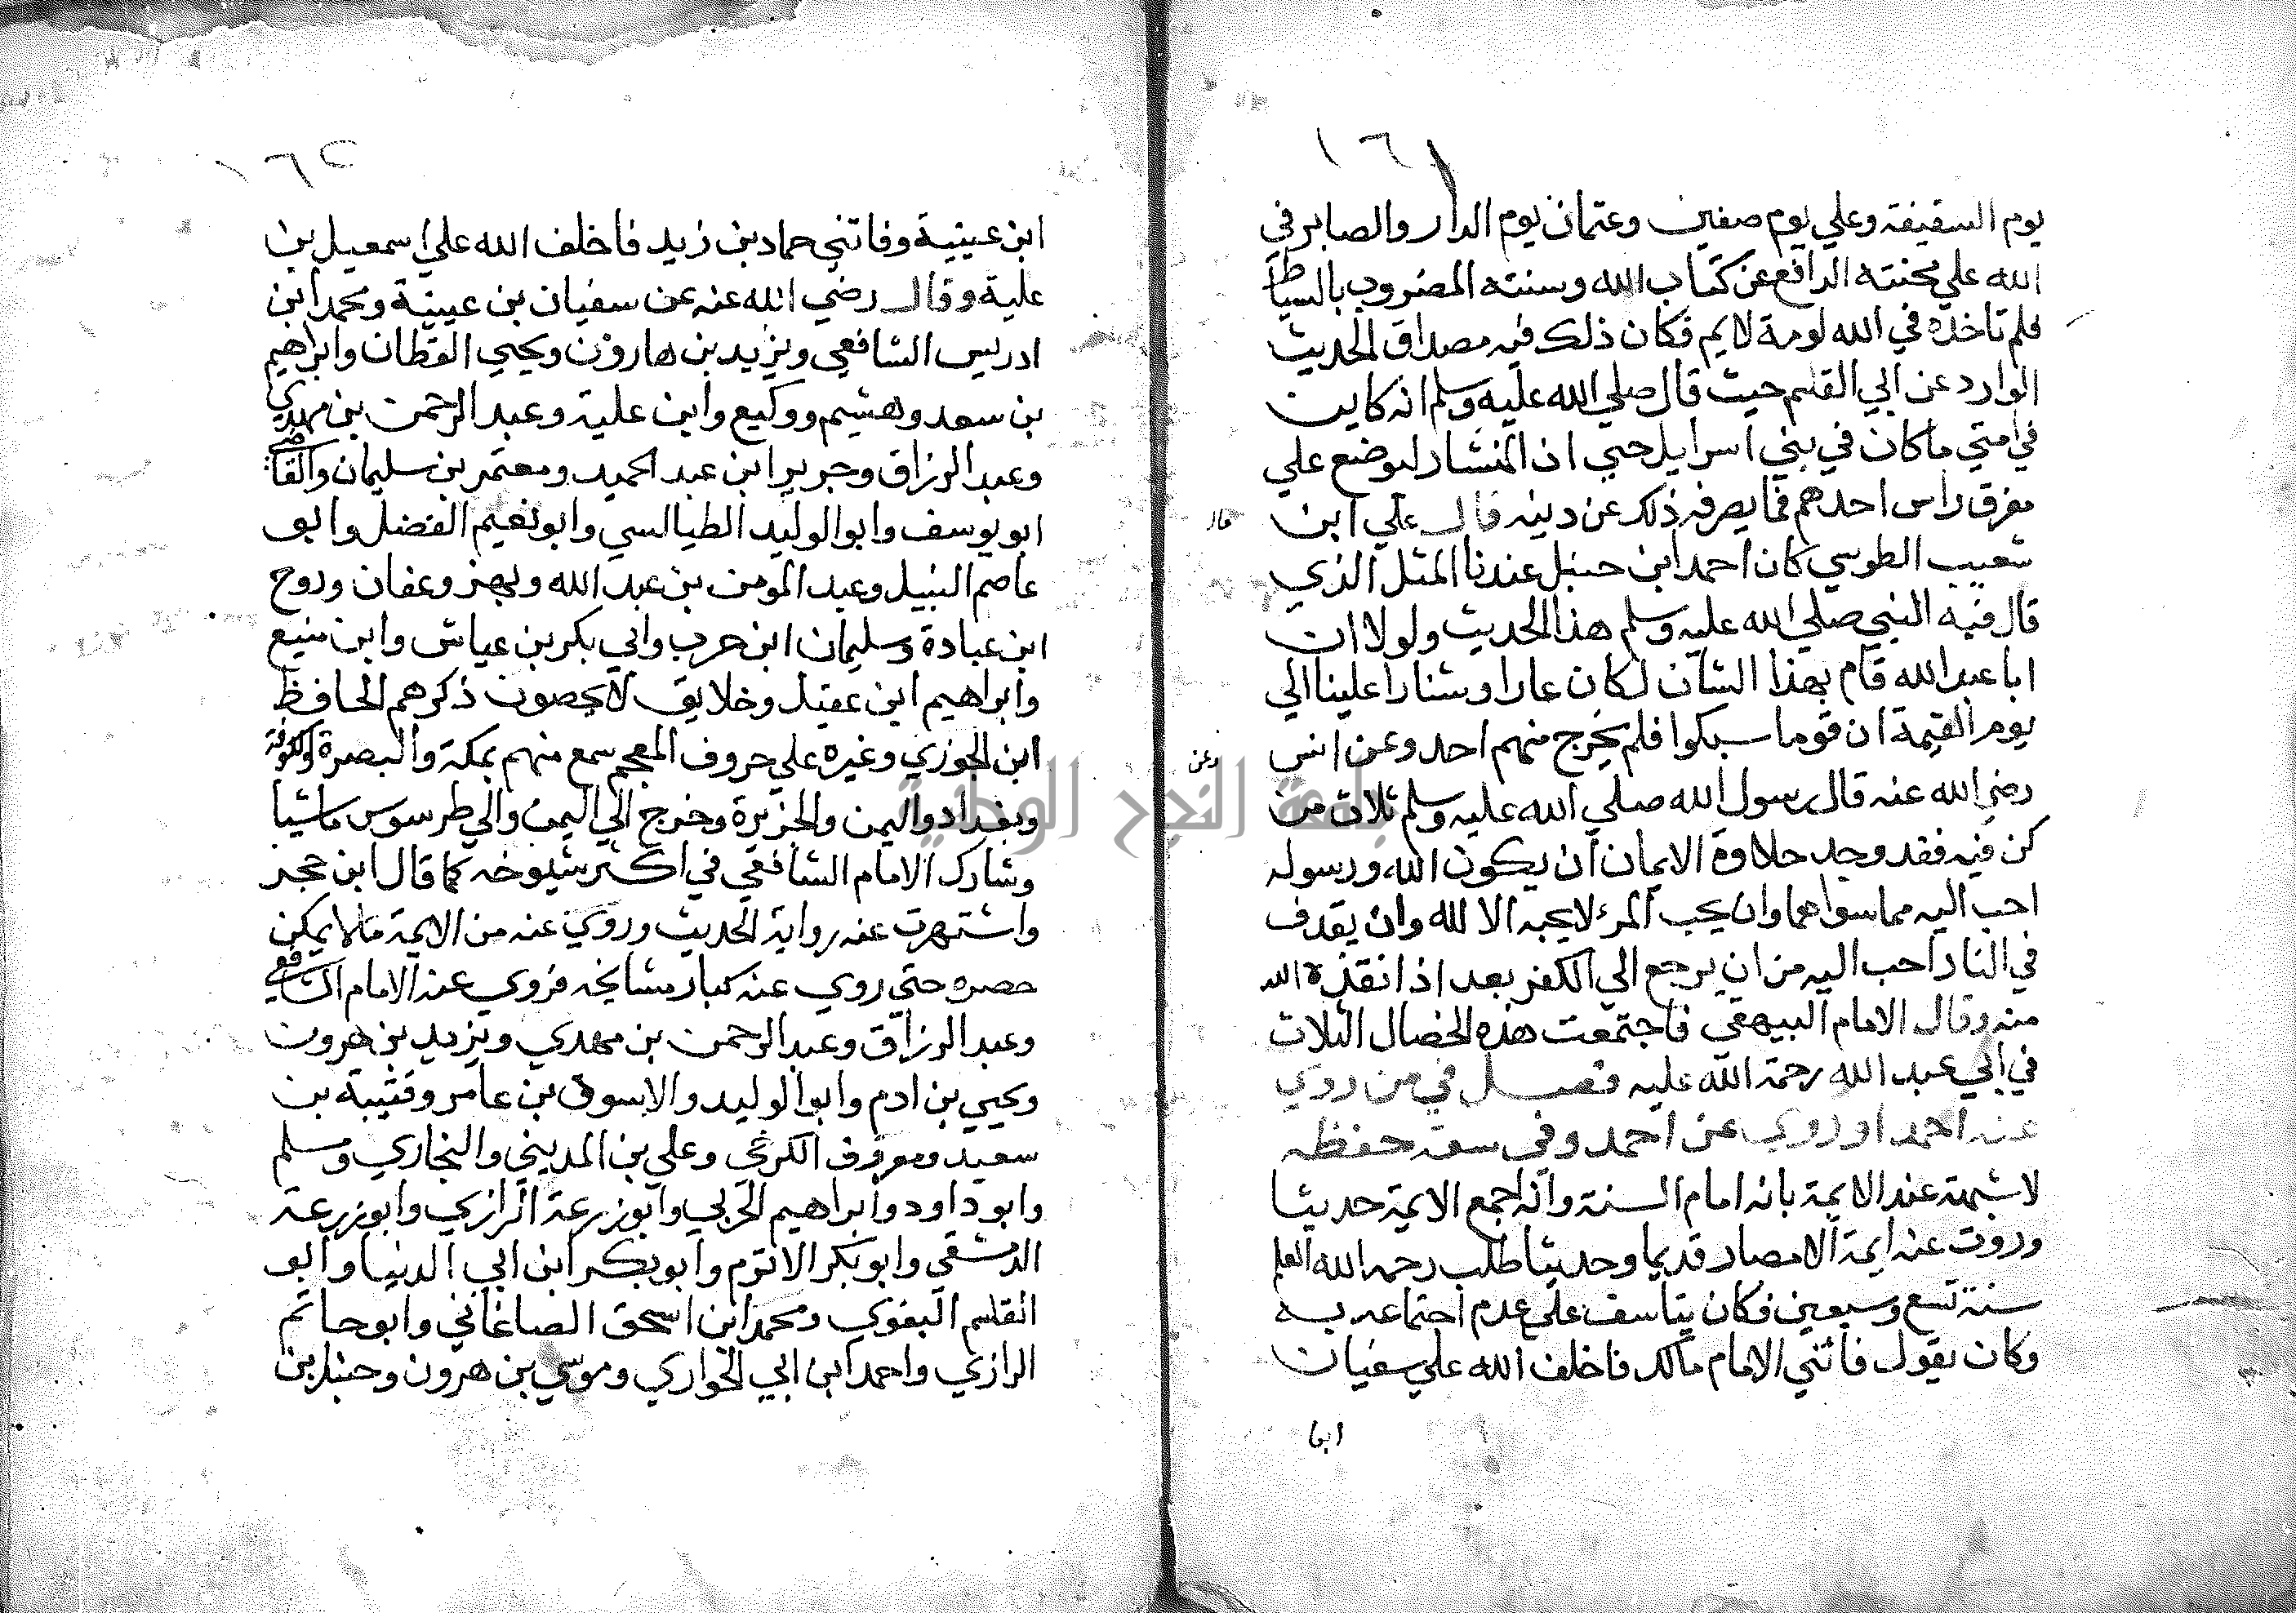 ١٦١
يوم السقيفة وعلي يوم صفين وعثمان يوم الدار والصابر في
الله علي محنته الرافع عن كتاب الله وسنته المضروب بالسياط
فلم تاخذه في الله لومة لايم فكان ذلك فيه مصداق الحديث
الوارد عن ابي القسم حيث قال صلي الله عليه وسلم انه كاين
في امتي ما كان في بني اسرايل حتي ان المنشار ليوضع علي
مفرق راس احدهم فما يصرفه ذلك عن دينه قال علي ابن
قال
شعيب الطوسي كان احمد ابن حنبل عندنا المثل الذي
قال فيه النبي صلي الله عليه وسلم هذا الحديث ولولا ان
ابا عبد الله قام بهذا الشان لكان عارا وشنارا علينا الي
يوم القيمة ان قوما سبكوا فلم يخرج منهم احد وعن انس
وعن
رضي الله عنه قال رسول الله صلي الله عليه وسلم ثلاث من
كن فيه فقد وجد حلاوة الايمان ان يكون الله ورسوله
احب اليه مما سواهما وان يحب المرء لا يحبه الا لله وان يقدف
في النار احب اليه من ان يرجع الي الكفر بعد اذ انقذه الله
منه وقال الامام البيهقي فاجتمعت هذه الخصال الثلاث
في ابي عبد الله رحمة الله عليه فصل في من روي
عنه احمد او روي عن احمد وفي سعة حفظه
لا شبهة عند الايمة بانه امام السنة وانه اجمع الايمة حديثا
وروت عنه ايمة الامصار قديما وحديثا طلب رحمه الله العلم
سنة تسع وسبعين فكان يتاسف علي عدم اجتماعه به
وكان يقول فاتني الامام مالك فاخلف الله علي سفيان
ابن
١٦٢
ابن عيينية وفاتني حماد بن زيد فاخلف الله علي اسمعيل بن
علية وقال رضي الله عنه عن سفيان بن عيينة ومحمد ابن
ادريس الشافعي ويزيد بن هارون ويحيي القطان وابراهيم
بن سعد وهشيم ووكيع وابن علية وعبد الرحمن بن مهدي
وعبد الرزاق وجرير ابن عبد الحميد ومعتمر بن سليمان والقاضي
ابو يوسف وابو الوليد الطيالسي وابو نعيم الفضل وابو
عاصم النبيل وعبد المومن بن عبد الله وبهز وعفان وروح
ابن عبادة وسليمان ابن حرب وابي بكر بن عياش وابن منيع
وابراهيم ابن عقيل وخلايق لا يحصون ذكرهم الحافظ
ابن الجوزي وغيره علي حروف المعجم سمع منهم بمكة والبصرة والكوفة
وبغداد واليمن والجزيرة وخرج الي اليمن والي طرسوس ماشيا
وشارك الامام الشافعي في اكثر شيوخه كما قال ابن حجر
واشتهرت عنه رواية الحديث وروي عنه من الايمة ما لا يمكن
حصره حتي روي عنه كبار مشايخه فروي عنه الامام الشافعي
وعبد الرزاق وعبد الرحمن بن مهدي ويزيد بن هرون
ويحيي بن ادم وابو الوليد والاسود بن عامر وقتيبة بن
سعيد ومعروف الكرخي وعلي بن المديني والبخاري ومسلم
وابو داود وابراهيم الحربي وابو زرعة الرازي وابو زرعة
الدمشقي وابو بكر الاثرم وابو بكر ابن ابي الدنيا وابو
القسم البغوي ومحمد ابن اسحق الصاغاني وابو حاتم
الرازي واحمد ابن ابي الحواري وموسي بن هرون وحنبل بن
جامعة النجاح الوطنية